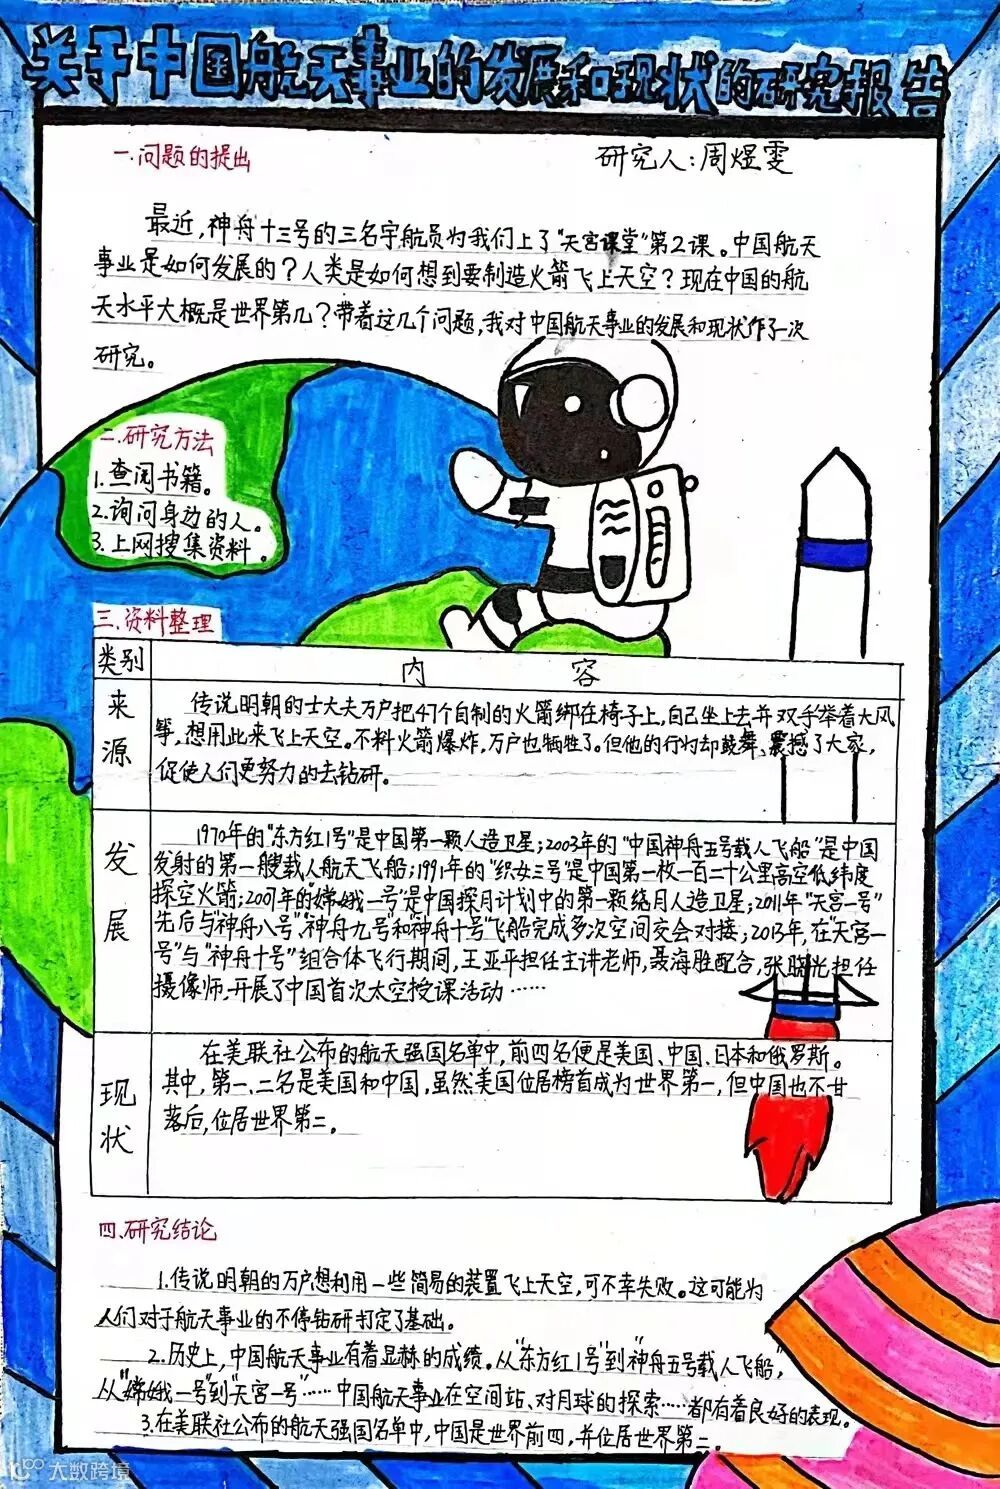 关于中国航天事业的发展和现状的研究报告
一.问题的提出
研究人:周煜雯
最近,神舟十三号的三名宇航员为我们上了“天宫课堂”第2课。中国航天
事业是如何发展的?人类是如何想到要制造火箭飞上天空?现在中国的航
天水平大概是世界第几?带着这几个问题,我对中国航天事业的发展和现状作了一次
研究。
二.研究方法
1.查阅书籍。
2.询问身边的人。
3.上网搜集资料。
三.资料整理
类别
内 容
来源
传说明朝的士大夫万户把47个自制的火箭绑在椅子上,自己坐上去并双手举着大风
筝,想用此来飞上天空。不料火箭爆炸,万户也牺牲了。但他的行为却鼓舞、震撼了大家,
促使人们更努力的去钻研。
发展
1970年的“东方红1号”是中国第一颗人造卫星;2003年的“中国神舟五号载人飞船”是中国
发射的第一艘载人航天飞船;1991年的“织女三号”是中国第一枚一百二十公里高空低纬度
探空火箭;2007年的“嫦娥一号”是中国探月计划中的第一颗绕月人造卫星;2011年“天宫一号”
先后与“神舟八号”“神舟九号”和“神舟十号”飞船完成多次空间交会对接;2013年,在“天宫一
号”与“神舟十号”组合体飞行期间,王亚平担任主讲老师,聂海胜配合,张晓光担任
摄像师,开展了中国首次太空授课活动……
现状
在美联社公布的航天强国名单中,前四名便是美国、中国、日本和俄罗斯。
其中,第一、二名是美国和中国,虽然美国位居榜首成为世界第一,但中国也不甘
落后,位居世界第二。
四.研究结论
1.传说明朝的万户想利用一些简易的装置飞上天空,可不幸失败。这可能为
人们对于航天事业的不停钻研打定了基础。
2.历史上,中国航天事业有着显赫的成绩。从“东方红1号”到“神舟五号载人飞船”,
从“嫦娥一号”到“天宫一号”……中国航天事业在空间站、对月球的探索……都有着良好的表现。
3.在美联社公布的航天强国名单中,中国是世界前四,并位居世界第二。
大数跨境